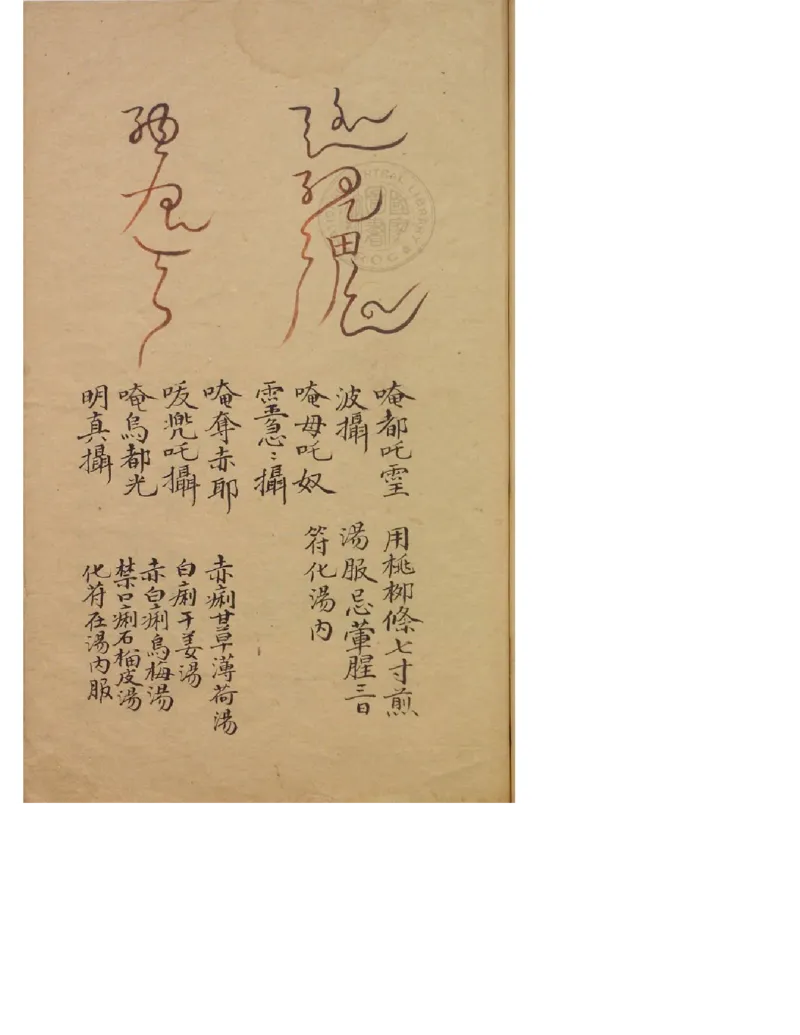 唵都吒霊
波攝
唵母吒奴
霊急〻攝
用桃柳條七寸煎
湯服忌葷腥三日
符化湯內
唵奪赤耶
吺兠吒攝
唵烏都光
明真攝
赤痢甘草薄荷湯
白痢干姜湯
赤白痢烏梅湯
禁口痢石榴皮湯
化符在湯內服